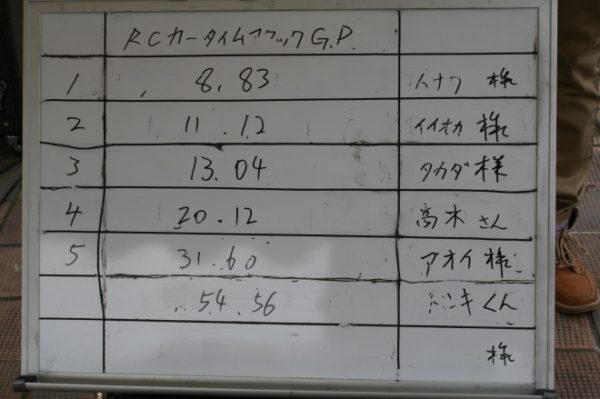 RCカータイムアタックG.P.
1 8.83 イナワ 様
2 11.12 イイオカ 様
3 13.04 タカダ 様
4 20.12 高木 さん
5 31.60 アオイ 様
54.56 くん
様